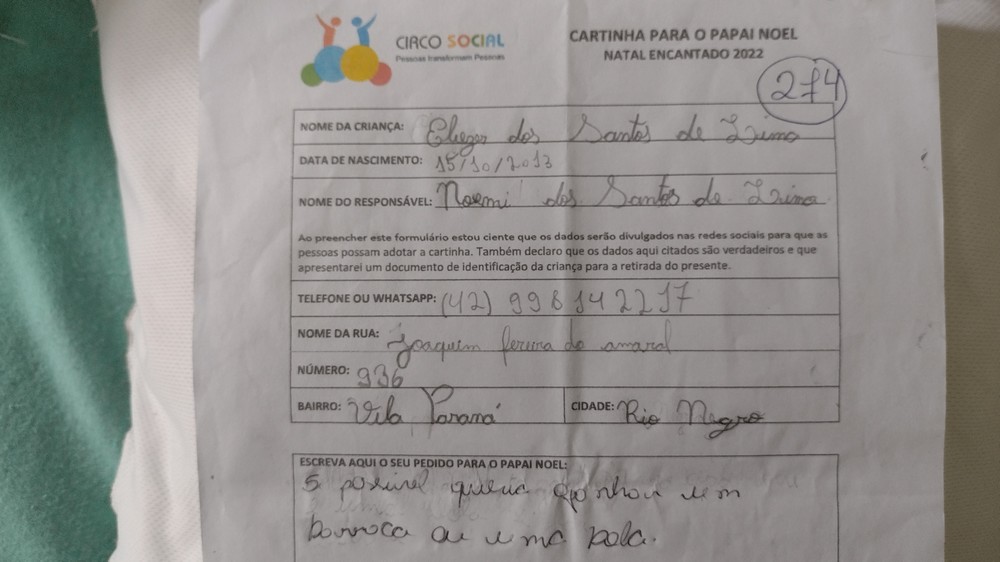 CIRCO SOCIAL
Pessoas transformam Pessoas
CARTINHA PARA O PAPAI NOEL
NATAL ENCANTADO 2022
274
NOME DA CRIANÇA: Eliezer dos Santos de Lima
DATA DE NASCIMENTO: 15/10/2013
NOME DO RESPONSÁVEL: Noemi dos Santos de Lima
Ao preencher este formulário estou ciente que os dados serão divulgados nas redes sociais para que as
pessoas possam adotar a cartinha. Também declaro que os dados aqui citados são verdadeiros e que
apresentarei um documento de identificação da criança para a retirada do presente.
TELEFONE OU WHATSAPP: (42) 998142217
NOME DA RUA: Joaquim ferreira do amaral
NÚMERO: 936
BAIRRO: Vila Paraná CIDADE: Rio Negro
ESCREVA AQUI O SEU PEDIDO PARA O PAPAI NOEL:
queria um
ou uma bola.